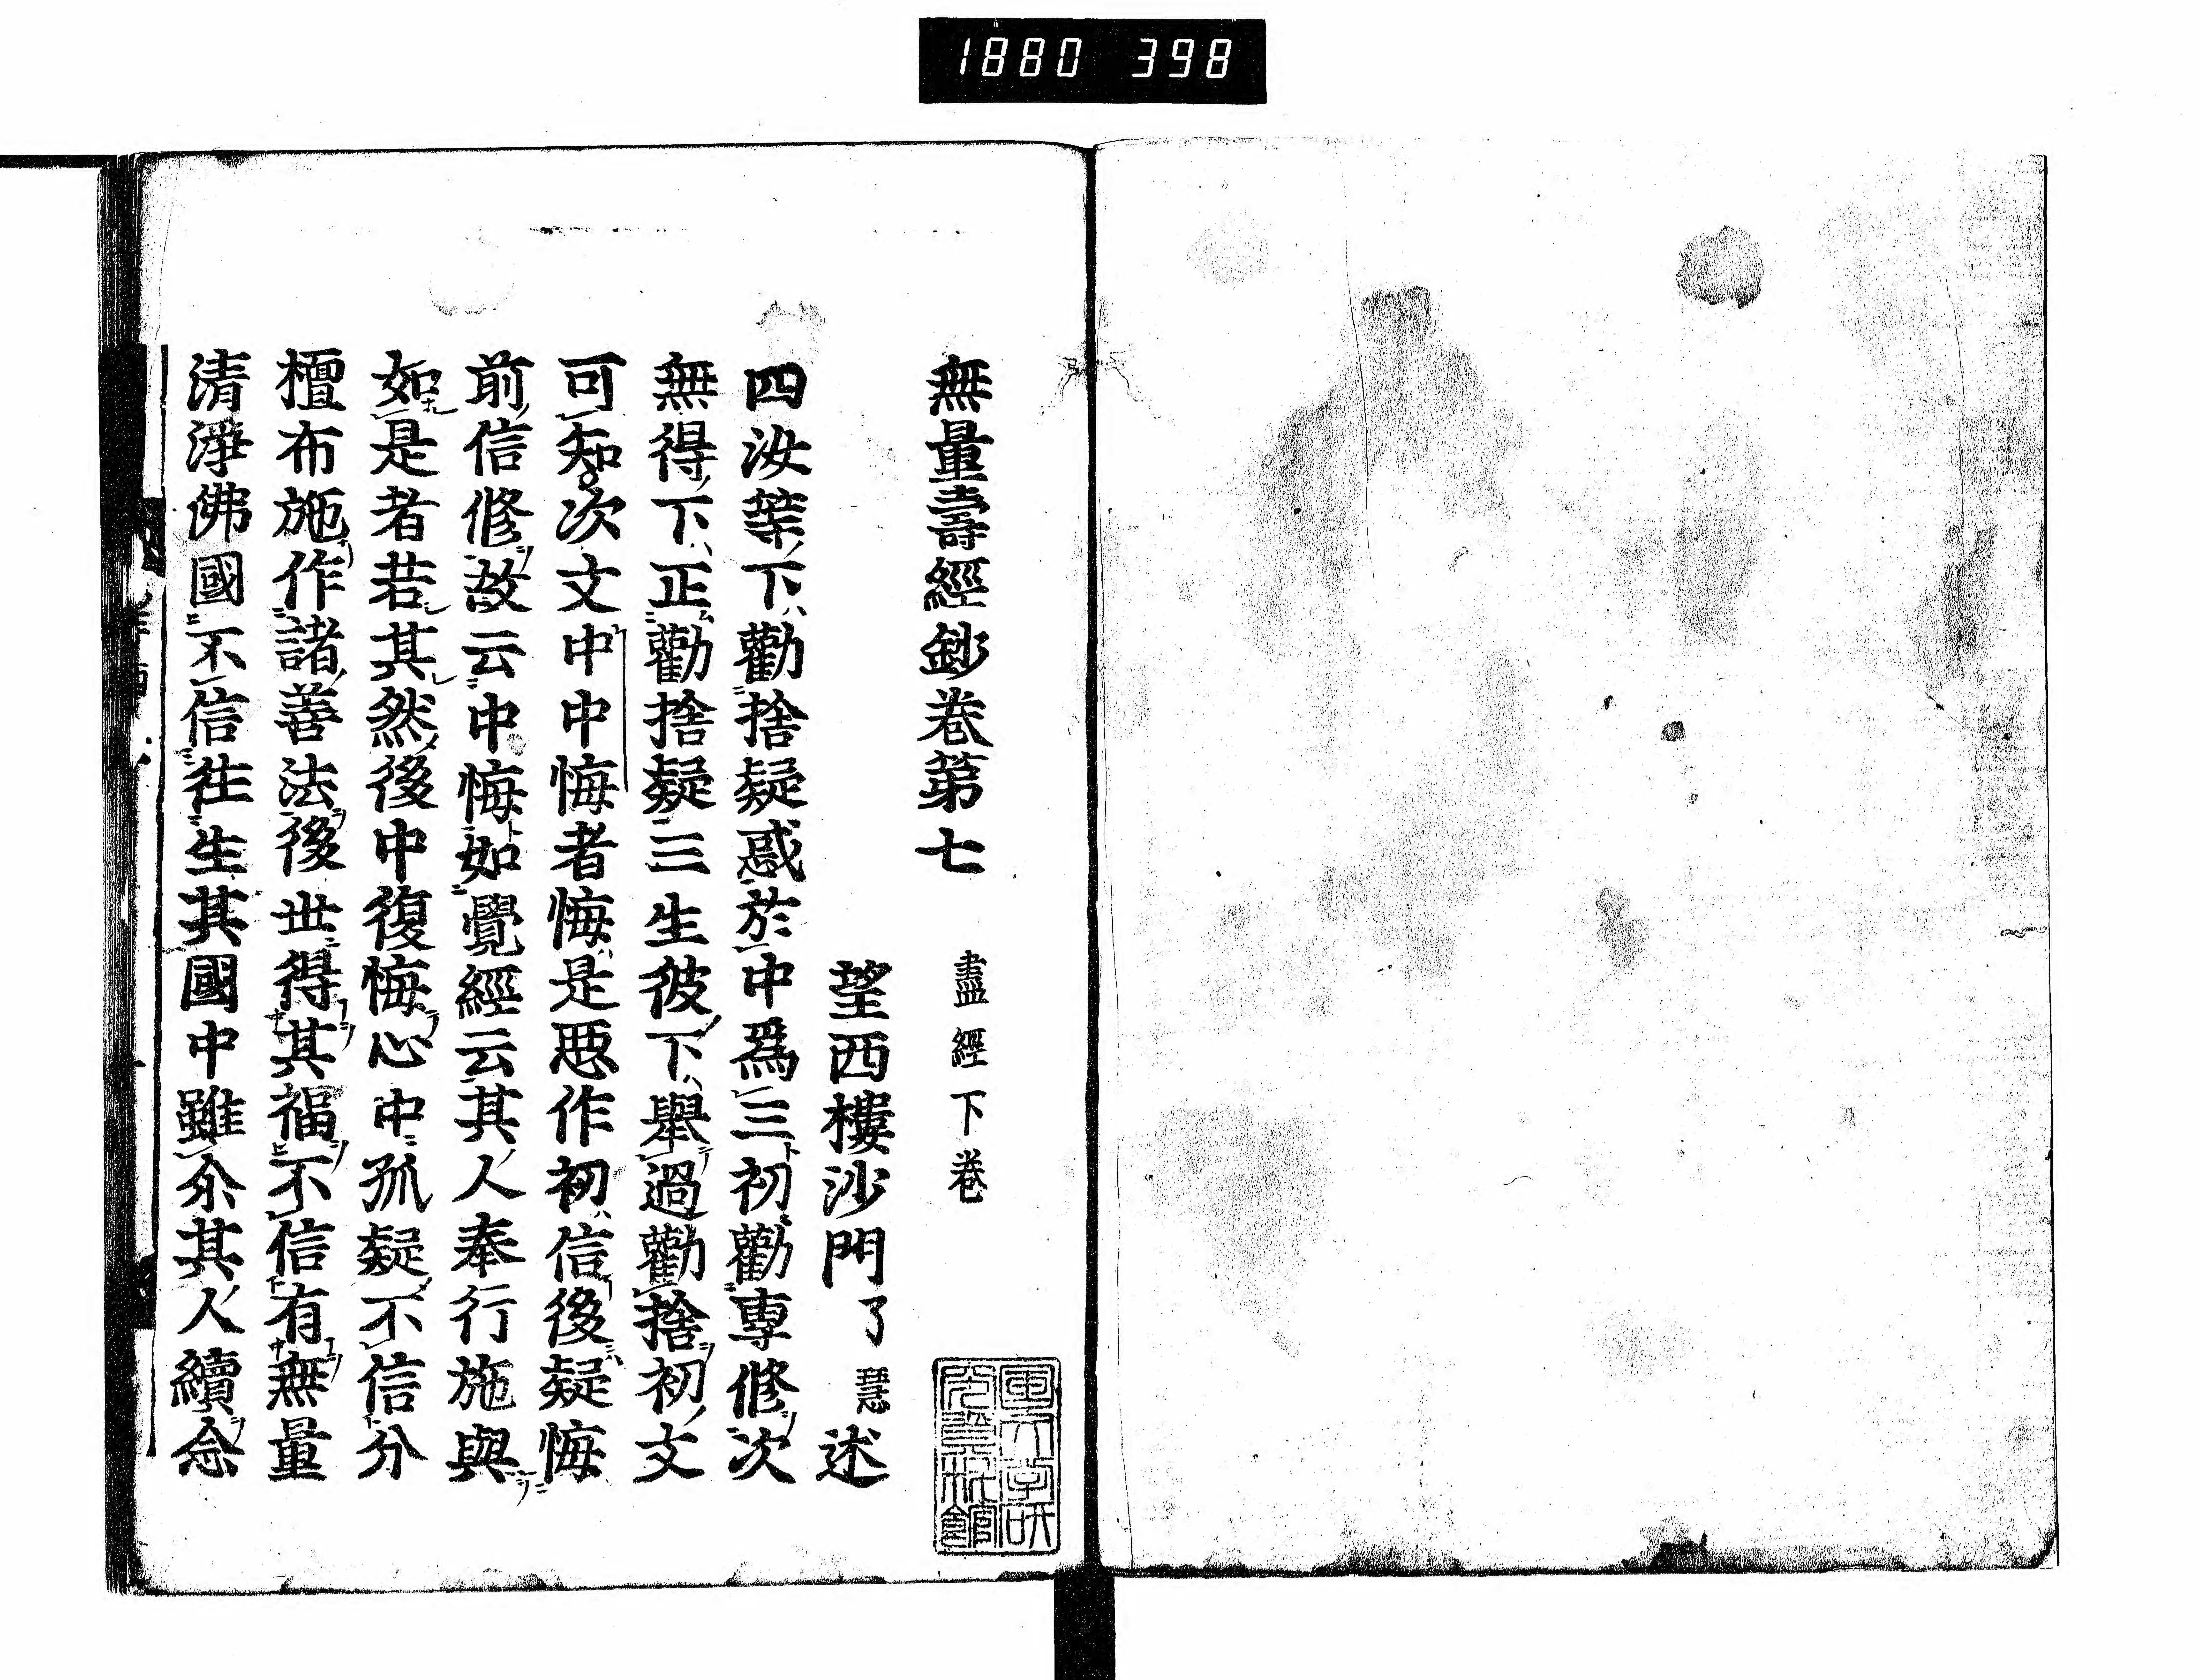 1880 398
無量壽經鈔卷第七 盡經下卷
望西樓沙門了慧述
四汝等下勸捨疑惑於中爲三初勸專修次
無得下正勸捨疑三生彼下舉過勸捨初文
可知次文中中悔者悔是惡作初信後疑悔
前信修故云中悔如覺經云其人奉行施與
如是者若其然後中復悔心中狐疑不信分
檀布施作諸善法後世得其福不信有無量
清淨佛國不信徃生其國中雖尒其人續念
國文学研
究資料館